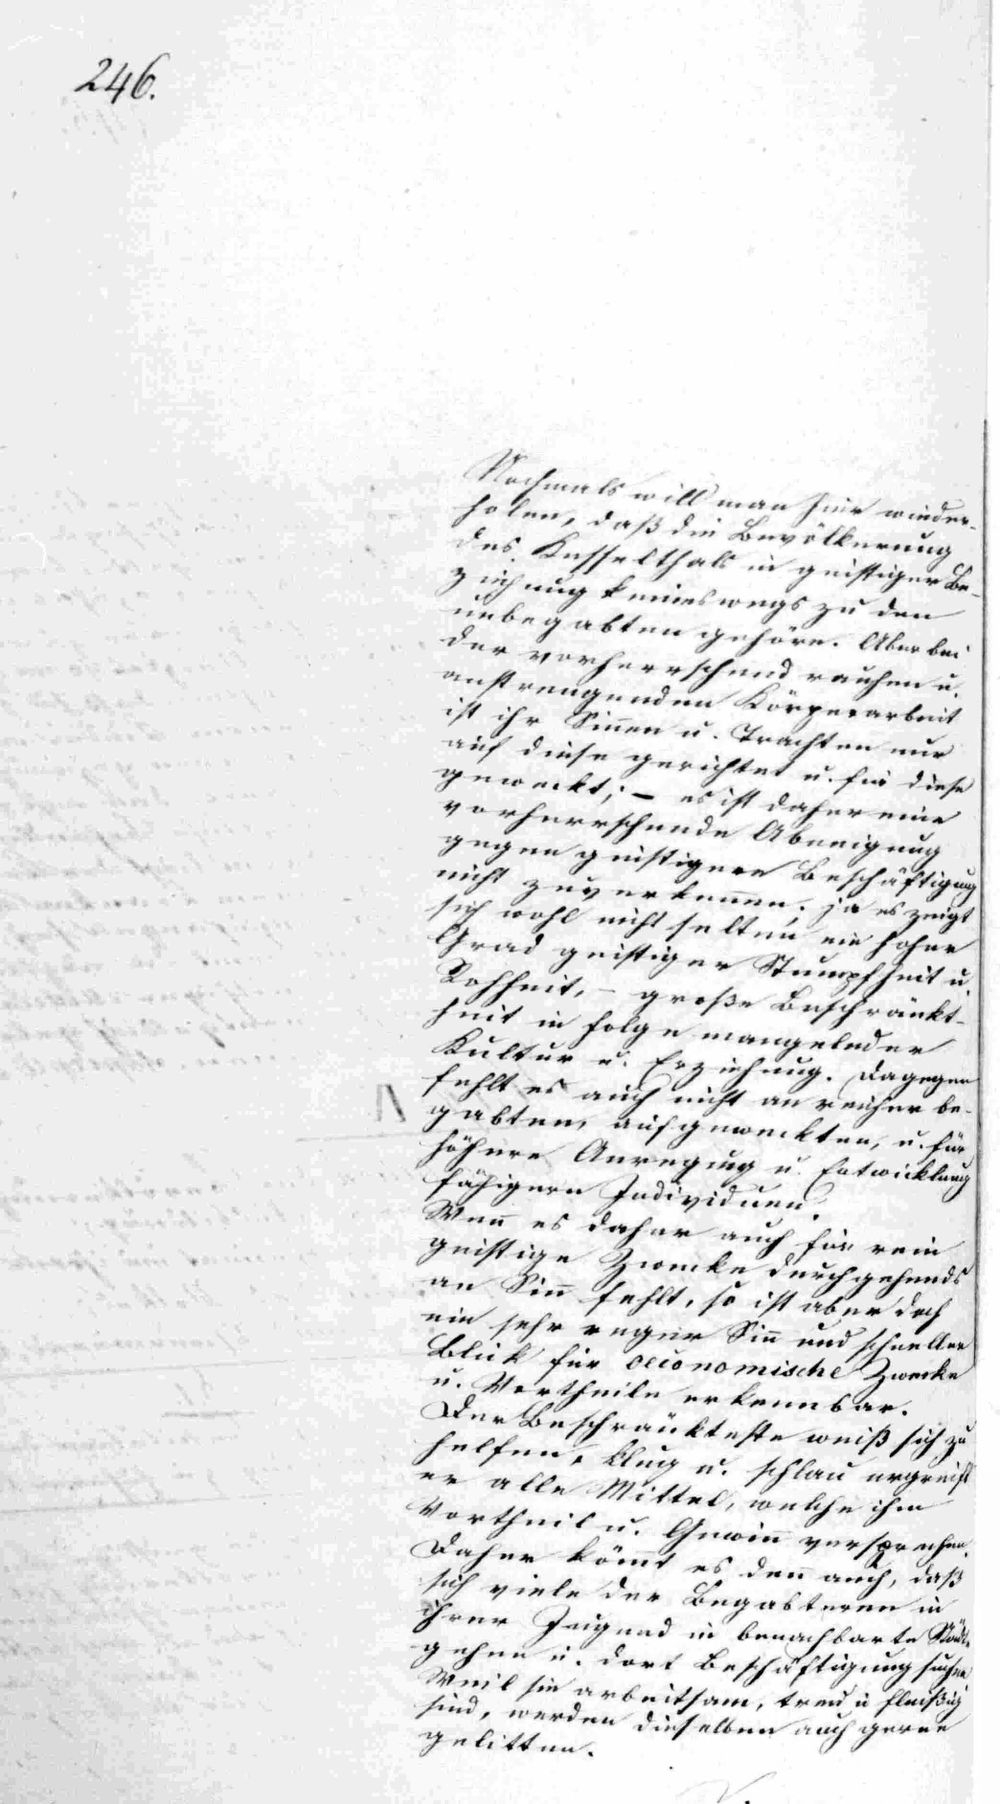 246.
Nochmals will man hier wieder-
holen, daß die Bevölkerung
des Kesselthals in geistiger Be-
ziehung keineswegs zu den
unbegabten gehöre. Aber bei
der vorherrschend rauhen u.
anstrengenden Körperarbeit
ist ihr Sinnen u. Trachten nur
auf diese gerichtet u. für diese
geweckt; – es ist daher eine
vorherrschende Abneigung
gegen geistigere Beschäftigung
nicht zu verkennen; ja es zeigt
sich wohl nicht selten ein hoher
Grad geistiger Stumpfheit u.
Rohheit, – große Beschränkt-
heit in folge mangelnder
Kultur u. Erziehung. Dagegen
fehlt es auch nicht an reicher be-
gabten, aufgeweckten, u. für
höhere Anregung u. Entwicklung
fähigern Individuen.
Wenn es daher auch für rein
geistige Zwecke durchgehends
an Sinn fehlt, so ist aber doch
ein sehr reger Sinn und schneller
Blick für oeconomische Zwecke
u. Vortheile erkennbar.
Der Beschränkteste weiß sich zu
helfen, klug u. schlau ergreift
er alle Mittel, welche ihm
Vortheil u. Gewinn versprechen.
Daher kömt es den auch, daß
sich viele der Begabteren in
ihrer Jugend in benachbarte Städte
gehen u. dort Beschäftigung suchen
Weil sie arbeitsam, treu u fleißig
sind, werden dieselben auch gerne
gelitten.